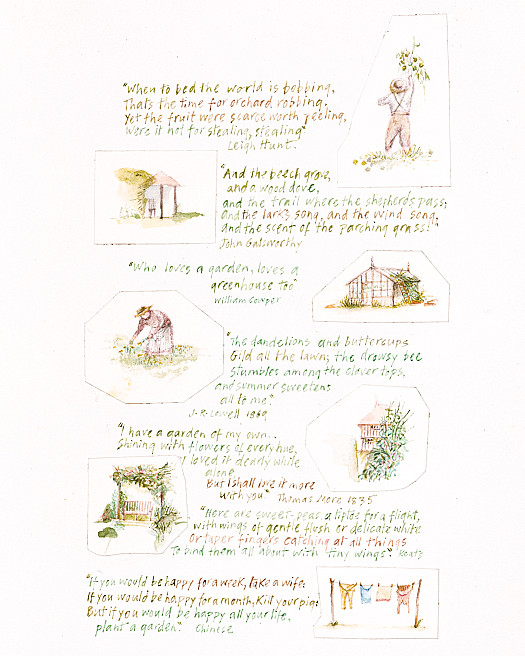 "When to bed the world is bobbing,
That's the time for orchard robbing.
Yet the fruit were scarce worth peeling,
Were it not for stealing, stealing"
Leigh Hunt.
"And the beech grove,
and a wood dove,
and the trail where the shepherds pass;
and the lark's song, and the wind song,
and the scent of the parching grass!"
John Galsworthy
"Who loves a garden, loves a
greenhouse too"
William Cowper
"The dandelions and buttercups
Gild all the lawn; the drowsy bee
Stumbles among the clover tops,
and summer sweetens
all to me"
J.R. Lowell 1869
"I have a garden of my own..
Shining with flowers of every hue,
I loved it dearly while
alone,
But I shall love it more
with you" Thomas Moore 1835
"Here are sweet peas, a tiptoe for a flight,
with wings of gentle flush or delicate white
Or taper fingers catching at all things
To bind them all about with tiny wings". Keats
"If you would be happy for a week, take a wife:
If you would be happy for a month, Kill your pig:
But if you would be happy all your life,
plant a garden". Chinese